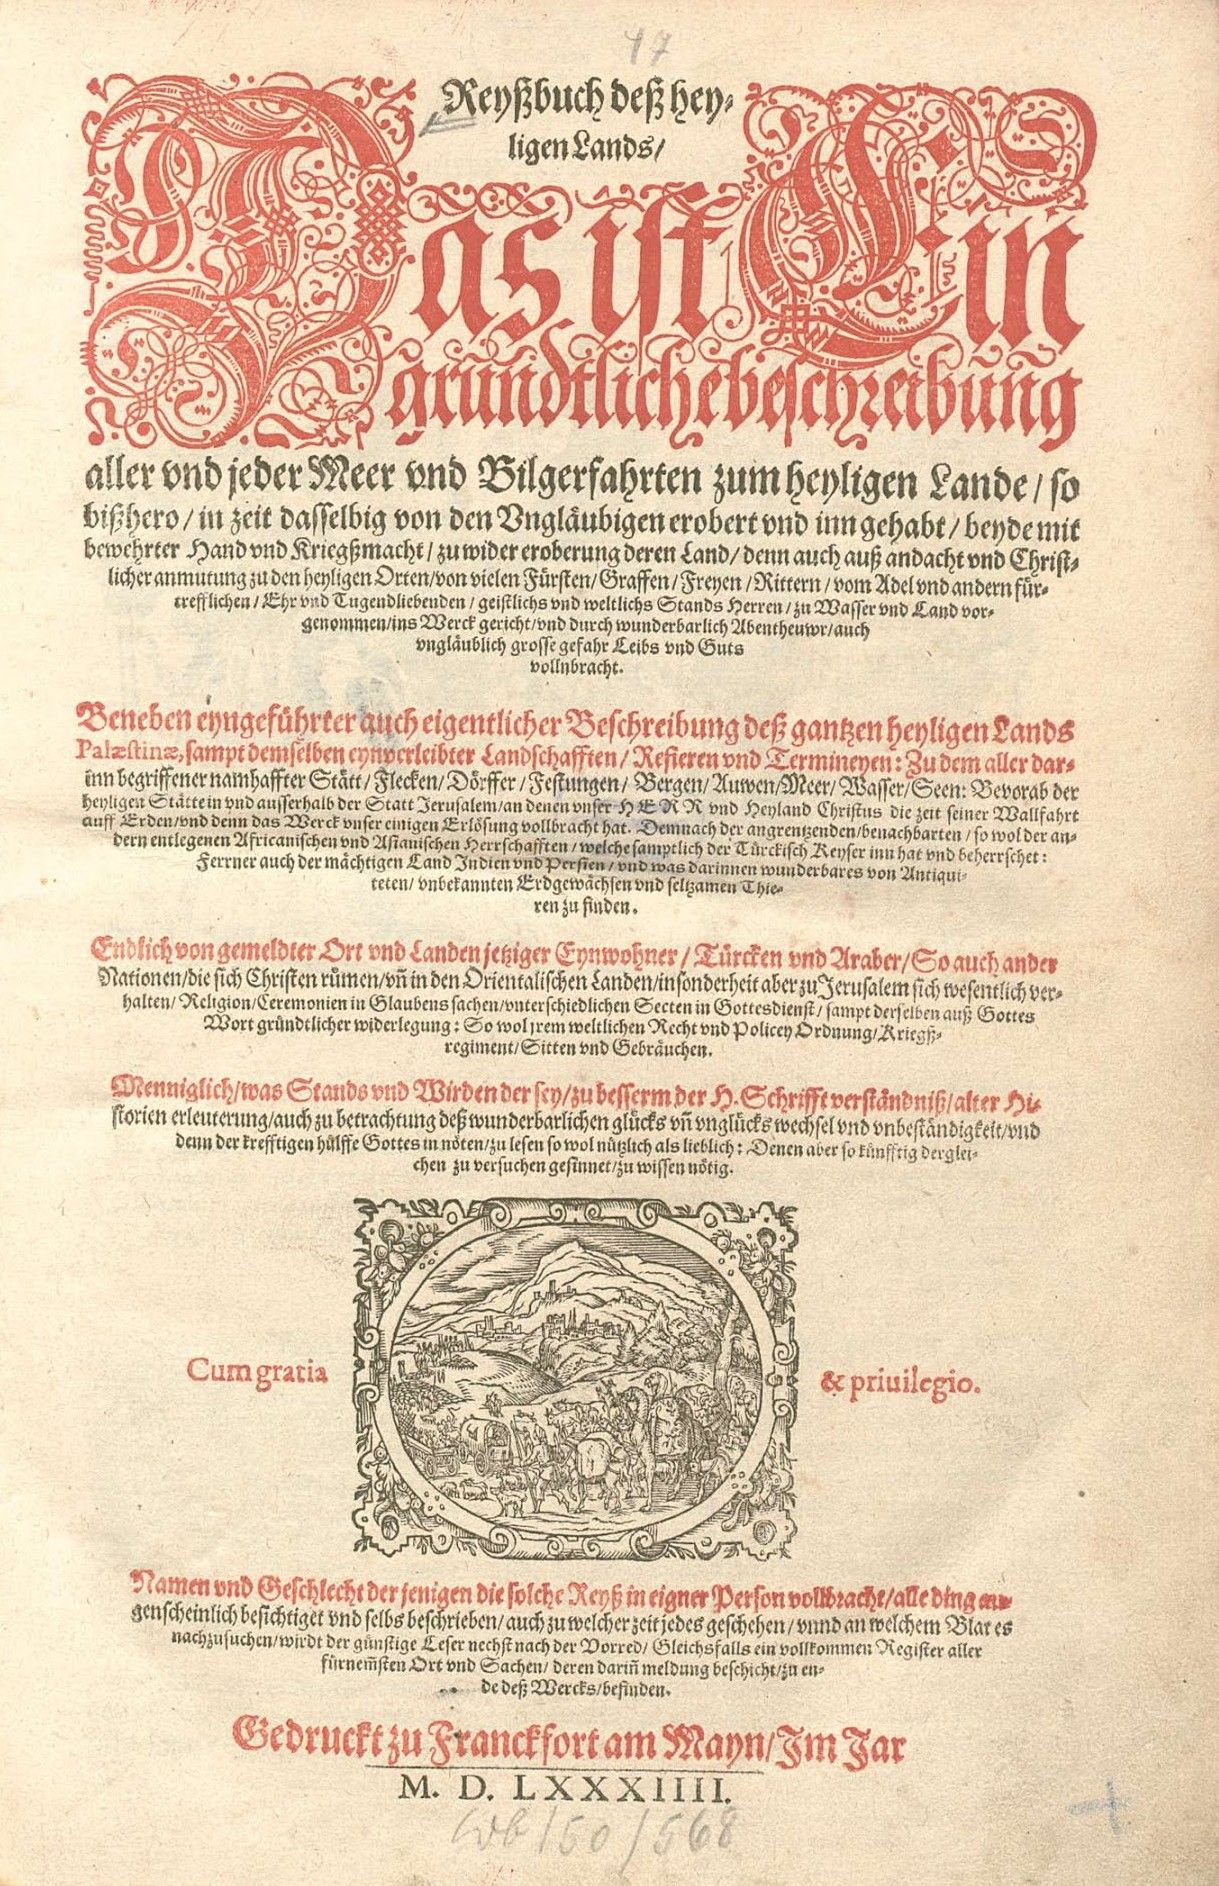 17
Reyßbuch deß hey-
ligen Lands/
Das ist Ein
grundtliche beschreibung
aller vnd jeder Meer vnd Bilgerfahrten zum heyligen Lande/ so
bißhero/ in zeit dasselbig von den Vngläubigen erobert vnd inn gehabt/ beyde mit
bewehrter Hand vnd Kriegßmacht/ zu wider eroberung deren Land/ denn auch auß andacht vnd Christ-
licher anmutung zu den heyligen Orten/ von vielen Fürsten/ Graffen/ Freyen/ Rittern/ vom Adel vnd andern für-
trefflichen/ Ehr vnd Tugendliebenden/ geistlichs vnd weltlichs Stands Herren/ zu Wasser vnd Land vor-
genommen/ ins Werck gericht/ vnd durch wunderbarlich Abentheuwr/ auch
vngläublich grosse gefahr Leibs vnd Guts
vollnbracht.
Beneben eyngeführter auch eigentlicher Beschreibung deß gantzen heyligen Lands
Palæstinæ, sampt demselben eynverleibter Landschafften/ Refieren vnd Termineyen: Zu dem aller dar-
inn begriffener namhaffter Stätt/ Flecken/ Dörffer/ Festungen/ Bergen/ Auwen/ Meer/ Wasser/ Seen: Bevorab der
heyligen Stätte in vnd ausserhalb der Statt Jerusalem/ an denen vnser HERR vnd Heyland Christus die zeit seiner Wallfahrt
auff Erden/ vnd denn das Werck vnser einigen Erlösung vollbracht hat. Demnach der angrentzenden/ benachbarten/ so wol der an-
dern entlegenen Africanischen vnd Asianischen Herrschafften/ welche samptlich der Türckisch Keyser inn hat vnd beherrschet:
Ferrner auch der mächtigen Land Indien vnd Persien/ vnd was darinnen wunderbares von Antiqui-
teten/ vnbekannten Erdgewächsen vnd seltzamen Thie-
ren zu finden.
Endlich von gemeldter Ort vnd Landen jetziger Eynwohner/ Türcken vnd Araber/ So auch ander
Nationen/ die sich Christen rümen/ vñ in den Orientalischen Landen/ insonderheit aber zu Jerusalem sich wesentlich ver-
halten/ Religion/ Ceremonien in Glaubens sachen/ vnterschiedlichen Secten in Gottesdienst/ sampt derselben auß Gottes
Wort gründtlicher widerlegung: So wol jrem weltlichen Recht vnd Policey Ordnung/ Kriegß-
regiment/ Sitten vnd Gebräuchen.
Menniglich/ was Stands vnd Wirden der sey/ zu besserm der H. Schrifft verständniß/ alter Hi-
storien erleuterung/ auch zu betrachtung deß wunderbarlichen glücks vñ vnglücks wechsel vnd vnbeständigkeit/ vnd
denn der krefftigen hülffe Gottes in nöten/ zu lesen so wol nützlich als lieblich: Denen aber so künfftig derglei-
chen zu versuchen gesinnet/ zu wissen nötig.
Cum gratia
& priuilegio.
Namen vnd Geschlecht der jenigen die solche Reyß in eigner Person vollbracht/ alle ding au-
genscheinlich besichtiget vnd selbs beschrieben/ auch zu welcher zeit jedes geschehen/ vnnd an welchem Blat es
nachzusuchen/ wirdt der günstige Leser nechst nach der Vorred/ Gleichsfalls ein vollkommen Register aller
fürnem̃sten Ort vnd Sachen/ deren dariñ meldung beschicht/ zu en-
de deß Wercks/ befinden.
Gedruckt zu Franckfort am Mayn/ Im Jar
M. D. LXXXIIII.
150/568